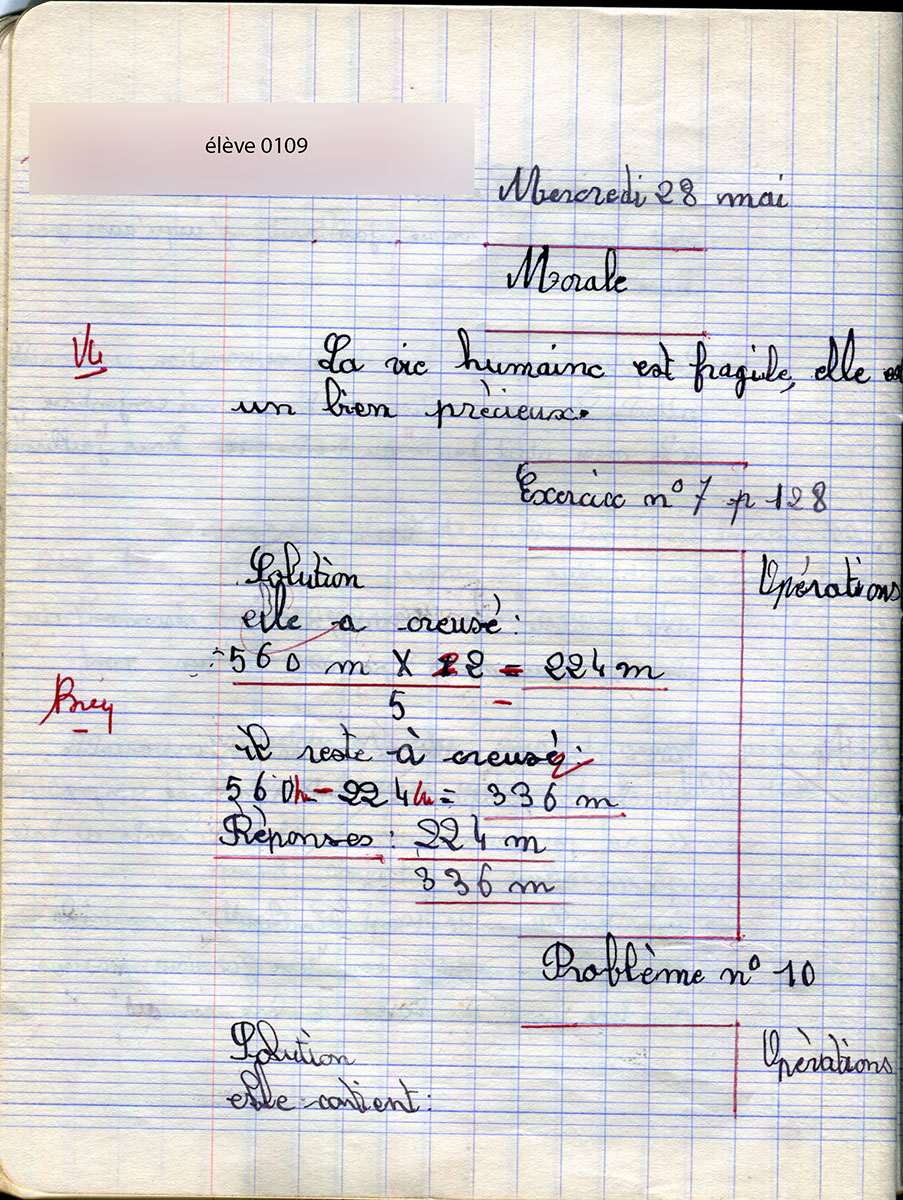 élève 0109
Mercredi 28 mai
Morale
Vu
La vie humaine est fragile, elle
un bien précieux.
Exercice n° 7 p 128
Solution
Opérations
elle a creusé :
560 m X 2 = 224 m
5
Bien
il reste à creusé :
560m - 224m = 336 m
Réponses : 224 m
336 m
Problème n° 10
Solution
Opérations
elle contient :